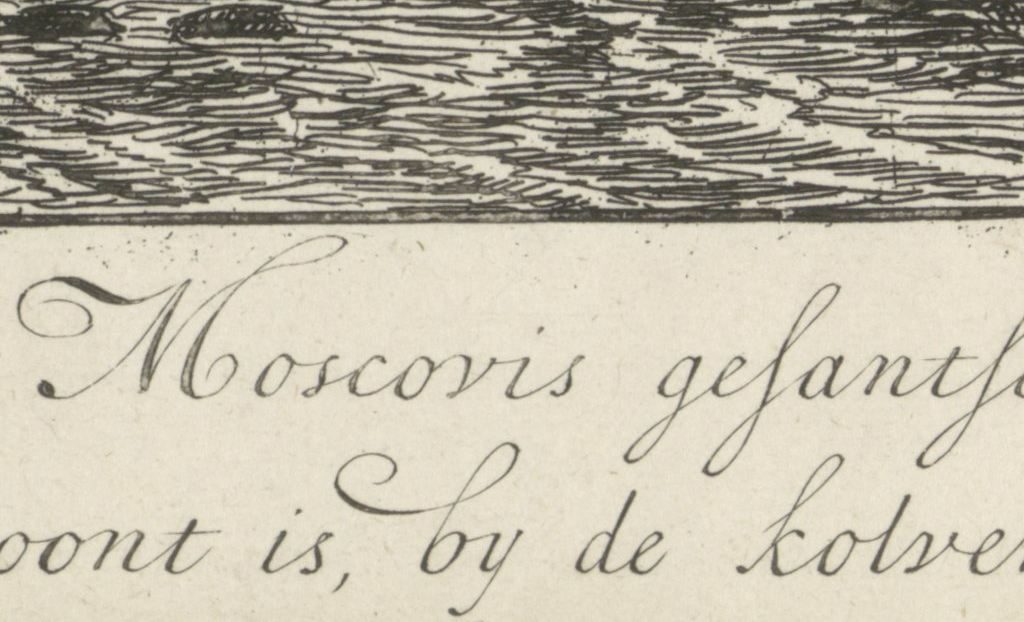 Moscovis geſantſc
oont is, by de kolver